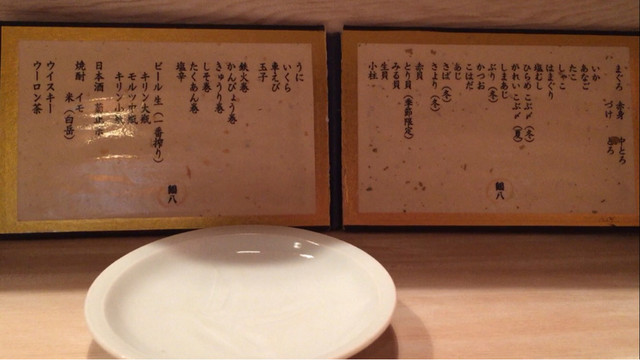 まぐろ 赤身 中とろ
づけ とろ
いか
あなご
たこ
しゃこ
はまぐり
塩むし
ひらめ こぶ〆(冬)
かれい こぶ〆(夏)
しまあじ
ぶり(冬)
かつお
こはだ
あじ
さば(冬)
さより(冬)
赤貝
とり貝(季節限定)
みる貝
生貝
小柱
鶴八
うに
いくら
車えび
玉子
鉄火巻
かんぴょう巻
きゅうり巻
しそ巻
たくあん巻
塩辛
ビール 生(一番搾り)
キリン大瓶
モルツ中瓶
キリン小瓶
日本酒
焼酎 イモ
米(白岳)
ウイスキー
ウーロン茶
鶴八